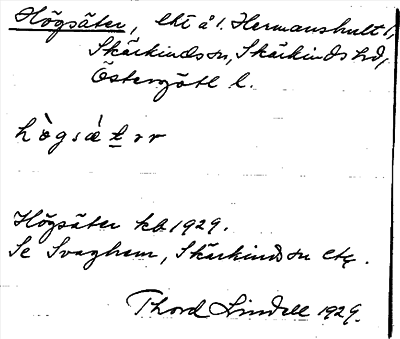 Högsäter, lht å 1. Hermanshult 1,
Skärkinds sn, Skärkinds hd,
Östergötl l.
hògsætər
Högsäter kb 1929.
Se Svaghem, Skärkinds sn etc.
Thord Lindell 1929.